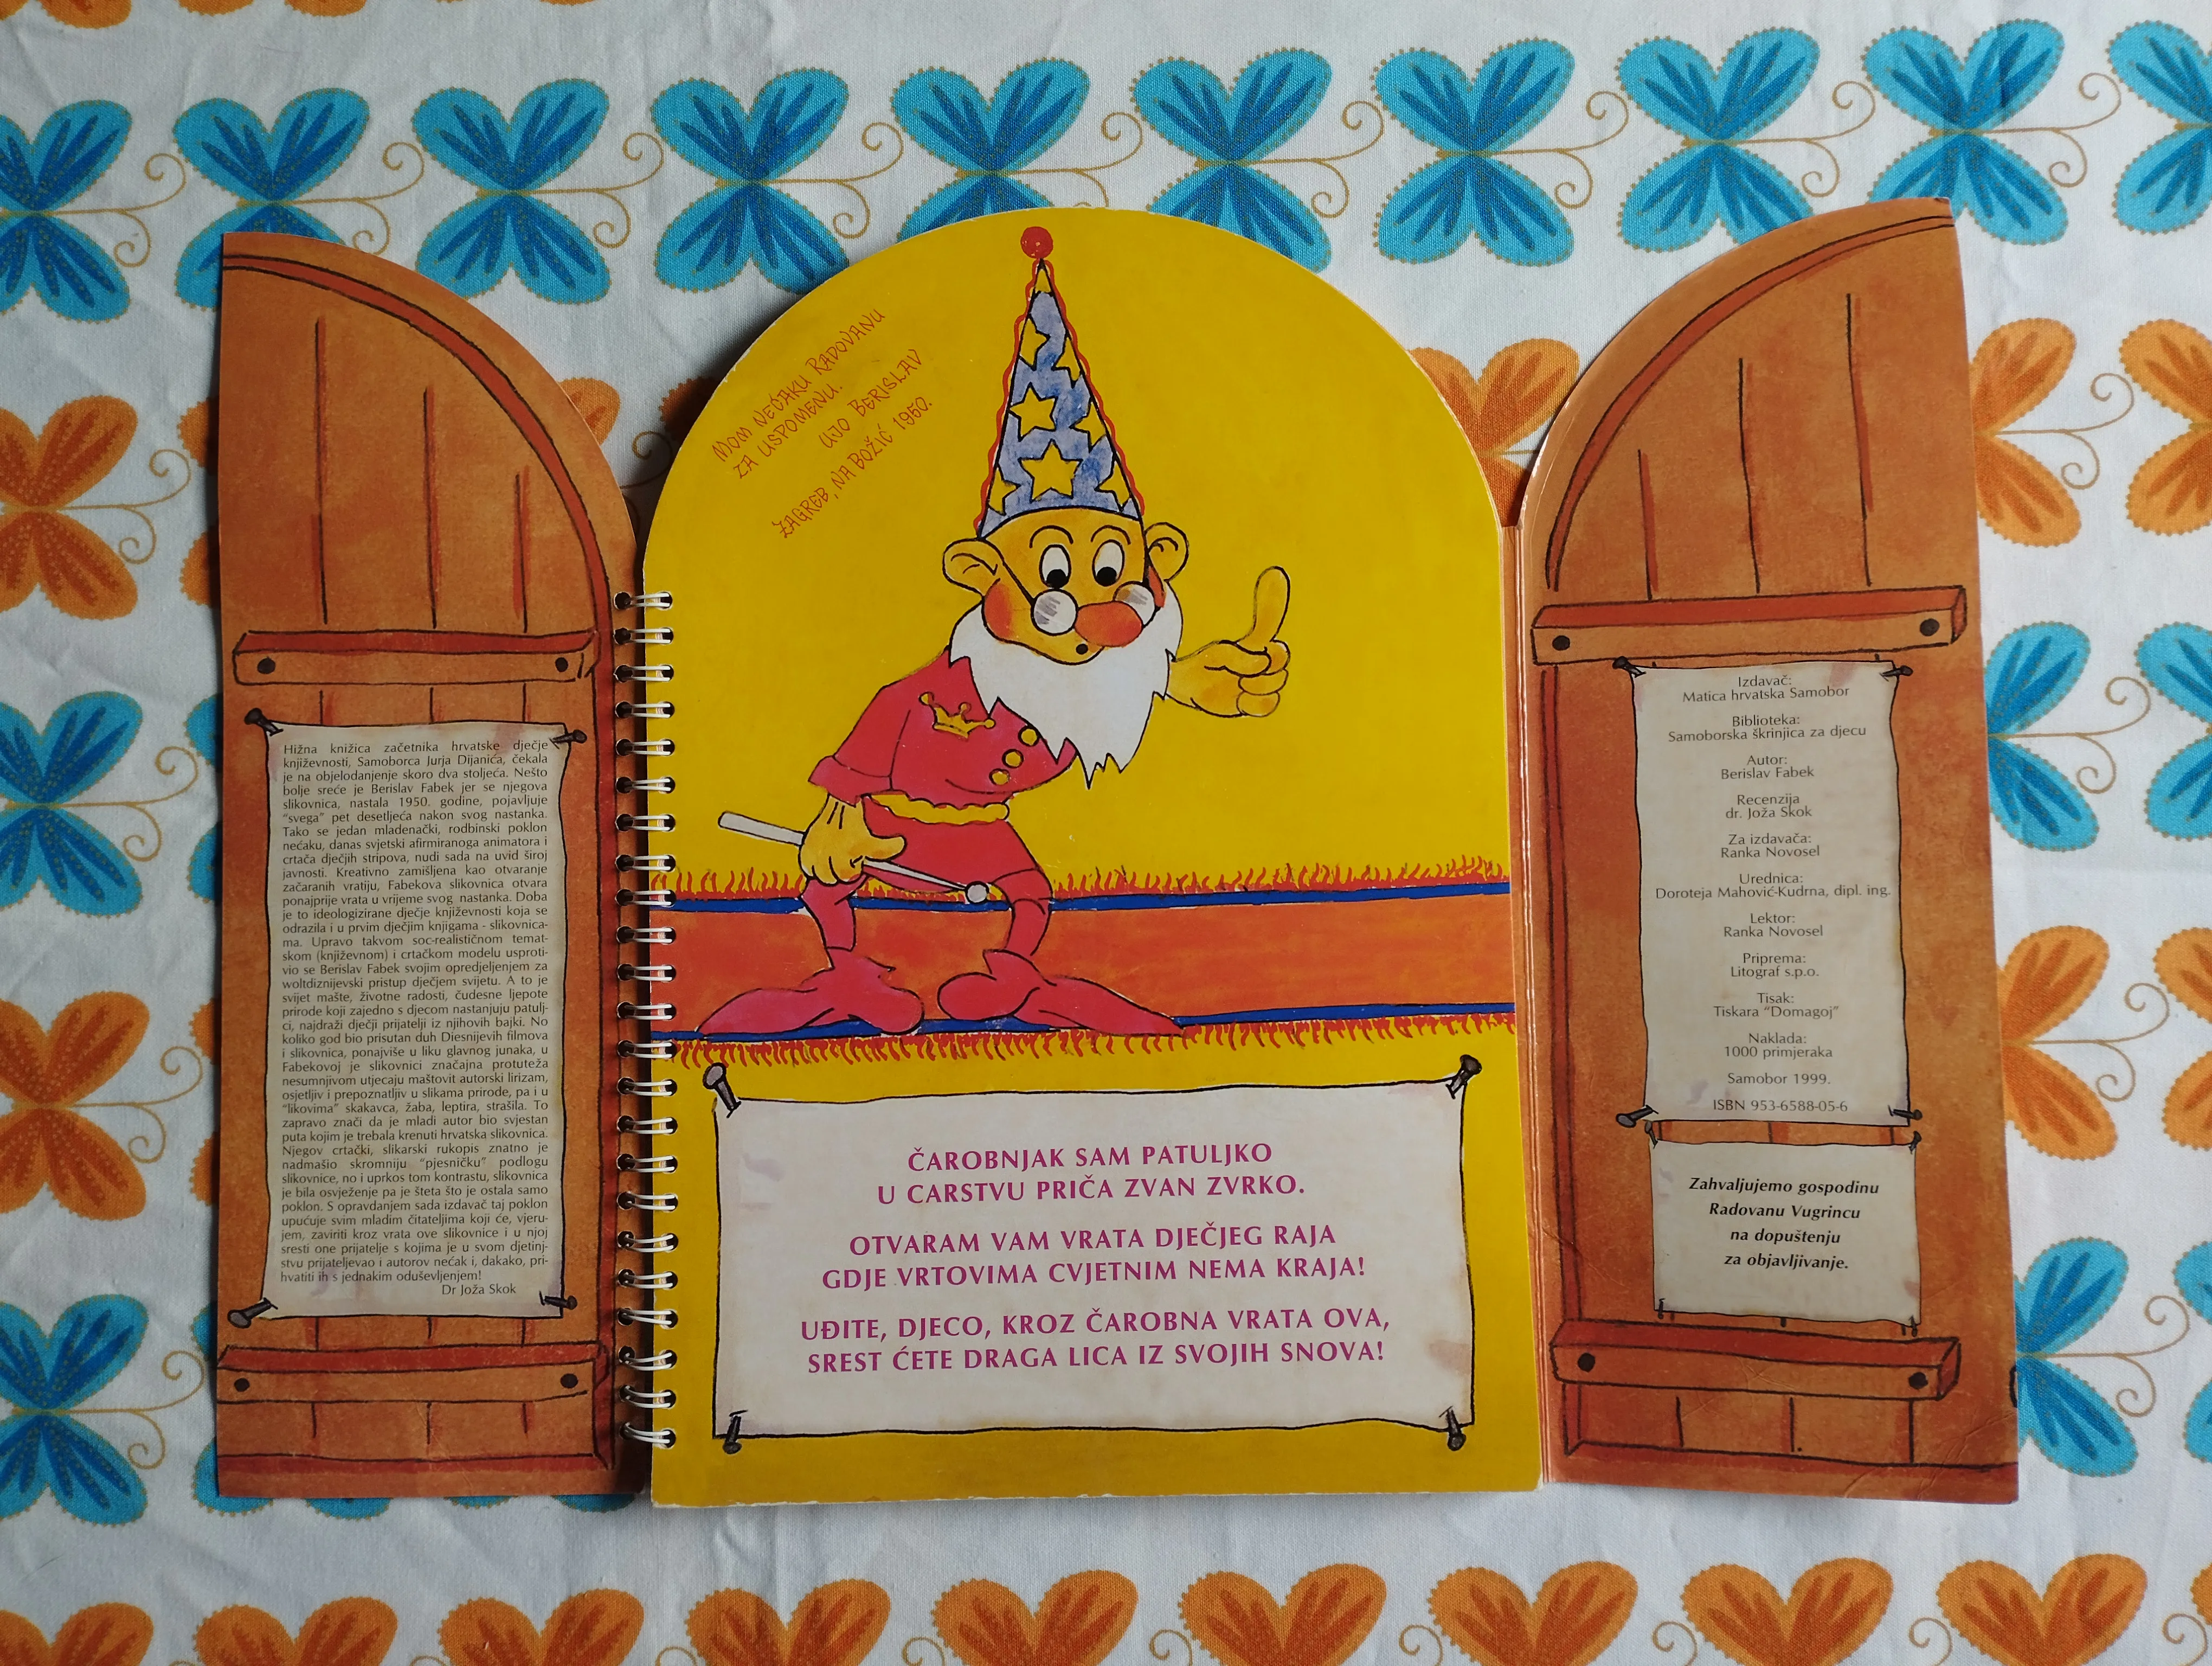 Hižna knižica začetnika hrvatske dječje
književnosti, Samoborca Jurja Dijanića, čekala
je na objelodanjenje skoro dva stoljeća. Nešto
bolje sreće je Berislav Fabek jer se njegova
slikovnica, nastala 1950. godine, pojavljuje
"svega" pet desetljeća nakon svog nastanka.
Tako se jedan mladenački, rodbinski poklon
nećaku, danas svjetski afirmiranoga animatora i
crtača dječjih stripova, nudi sada na uvid široj
javnosti. Kreativno zamišljena kao otvaranje
začaranih vratiju, Fabekova slikovnica otvara
ponajprije vrata u vrijeme svog nastanka. Doba
je to ideologizirane dječje književnosti koja se
odrazila i u prvim dječjim knjigama - slikovnica-
ma. Upravo takvom soc-realističnom temat-
skom (književnom) i crtačkom modelu usproti-
vio se Berislav Fabek svojim opredjeljenjem za
woltdiznijevski pristup dječjem svijetu. A to je
svijet mašte, životne radosti, čudesne ljepote
prirode koji zajedno s djecom nastanjuju patulj-
ci, najdraži dječji prijatelji iz njihovih bajki. No
koliko god bio prisutan duh Diesnijevih filmova
i slikovnica, ponajviše u liku glavnog junaka, u
Fabekovoj je slikovnici značajna protuteža
nesumnjivom utjecaju maštovit autorski lirizam,
osjetljiv i prepoznatljiv u slikama prirode, pa i u
"likovima" skakavca, žaba, leptira, strašila. To
zapravo znači da je mladi autor bio svjestan
puta kojim je trebala krenuti hrvatska slikovnica.
Njegov crtački, slikarski rukopis znatno je
nadmašio skromniju "pjesničku" podlogu
slikovnice, no i uprkos tom kontrastu, slikovnica
je bila osvježenje pa je šteta što je ostala samo
poklon. S opravdanjem sada izdavač taj poklon
upućuje svim mladim čitateljima koji će, vjeru-
jem, zaviriti kroz vrata ove slikovnice i u njoj
sresti one prijatelje s kojima je u svom djetinj-
stvu prijateljevao i autorov nećak i, dakako, pri-
hvatiti ih s jednakim oduševljenjem!
Dr Joža Skok
MOM NEĆAKU RADOVANU
ZA USPOMENU.
UJO BERISLAV
ZAGREB, NA BOŽIĆ 1950.
ČAROBNJAK SAM PATULJKO
U CARSTVU PRIČA ZVAN ZVRKO.
OTVARAM VAM VRATA DJEČJEG RAJA
GDJE VRTOVIMA CVJETNIM NEMA KRAJA!
UĐITE, DJECO, KROZ ČAROBNA VRATA OVA,
SREST ĆETE DRAGA LICA IZ SVOJIH SNOVA!
Izdavač:
Matica hrvatska Samobor
Biblioteka:
Samoborska škrinjica za djecu
Autor:
Berislav Fabek
Recenzija
dr. Joža Skok
Za izdavača:
Ranka Novosel
Urednica:
Doroteja Mahović-Kudrna, dipl. ing.
Lektor:
Ranka Novosel
Priprema:
Litograf s.p.o.
Tisak:
Tiskara "Domagoj"
Naklada:
1000 primjeraka
Samobor 1999.
ISBN 953-6588-05-6
Zahvaljujemo gospodinu
Radovanu Vugrincu
na dopuštenju
za objavljivanje.